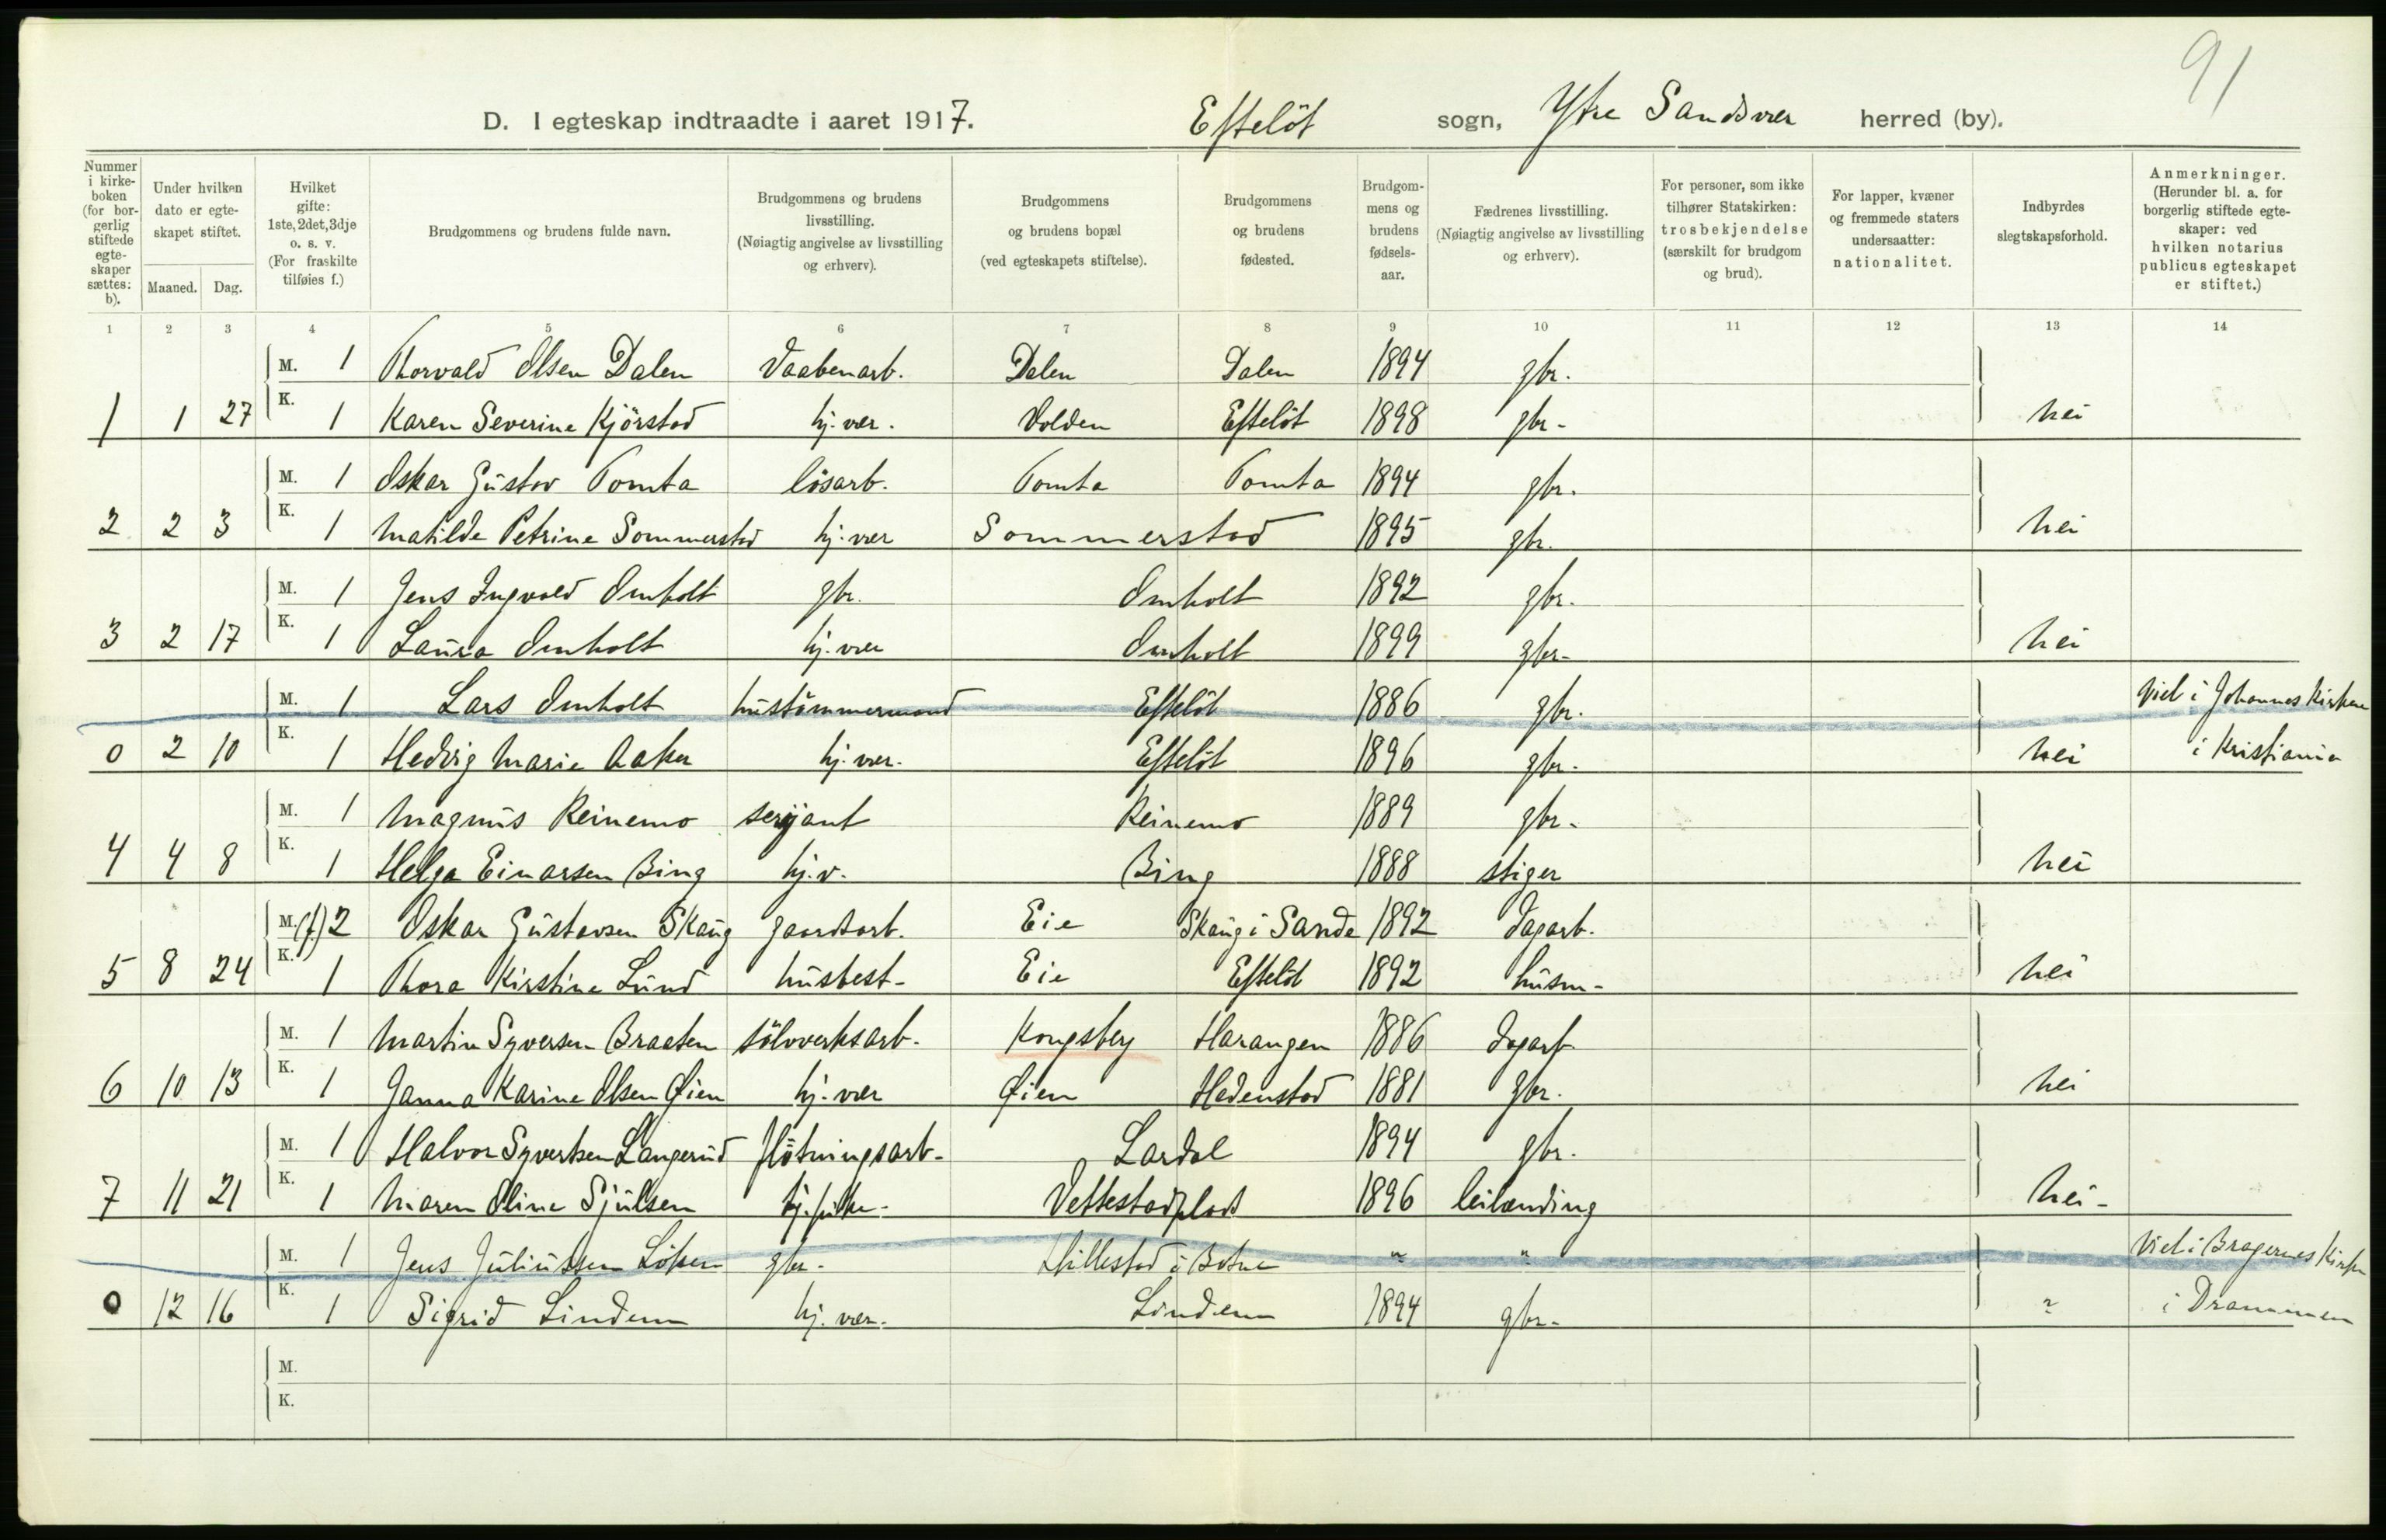 91
D. I egteskap indtraadte i aaret 1917. Efteløt sogn, Ytre Sandsvær herred (by).
Nummer i kirkeboken (for borgerlig stiftede egteskaper sættes: b). Under hvilken dato er egteskapet stiftet. Maaned. Dag. Hvilket gifte: 1ste, 2det, 3dje o. s. v. (For fraskilte tilføies f.) Brudgommens og brudens fulde navn. Brudgommens og brudens livsstilling. (Nøiagtig angivelse av livsstilling og erhverv). Brudgommens og brudens bopæl (ved egteskapets stiftelse). Brudgommens og brudens fødested. Brudgommens og brudens fødselsaar. Fædrenes livsstilling. (Nøiagtig angivelse av livsstilling og erhverv). For personer, som ikke tilhører Statskirken: trosbekjendelse (særskilt for brudgom og brud). For lapper, kvæner og fremmede staters undersaatter: nationalitet. Indbyrdes slegtskapsforhold. Anmerkninger. (Herunder bl. a. for borgerlig stiftede egteskaper: ved hvilken notarius publicus egteskapet er stiftet.)
1 2 3 4 5 6 7 8 9 10 11 12 13 14
M. 1 Thorvald Olsen Dalen Vaabenarb. Dalen Dalen 1894 gbr.
1 1 27 K. 1 Karen Severine Kjörstad hj. vær. Volden Efteløt 1898 gbr. nei
M. 1 Oskar Gustav Tomta løsarb. Tomta Tomta 1894 gbr.
2 2 3 K. 1 Matilde Petrine Sommerstad hj. vær Sommerstad 1895 gbr. nei
M. 1 Jens Ingvald Omholt gbr. Omholt 1892 gbr.
3 2 17 K. 1 Laura Omholt hj. vær Omholt 1899 gbr. nei
M. 1 Lars Omholt hustømmermand Efteløt 1886 gbr. Viet i Johannes Kirken
0 2 10 K. 1 Hedvig Marie Aaker hj. vær. Efteløt 1896 gbr. nei i Kristiania
M. 1 Magnus Reinemo serjant Reinemo 1889 gbr.
4 4 8 K. 1 Helga Einarsen Bing hj. v. Bing 1888 stiger nei
M. (f.) 2 Oskar Gustavsen Skaug gaardsarb. Eie Skaug i Sande 1892 dagarb.
5 8 24 K. 1 Thora Kirstine Lund husbest. Eie Efteløt 1892 husm. nei
M. 1 Martin Syversen Braaten sölvverksarb. Kongsberg Harangen 1886 dagarb.
6 10 13 K. 1 Janna Karine Olsen Øien hj. vær Øien Hedenstad 1881 gbr. nei
M. 1 Halvor Syvertsen Langerud fløtningsarb. Lardal 1894 gbr.
7 11 21 K. 1 Maren Oline Sjulsen hj. Vettestadplads 1896 leilænding nei
M. 1 Jens Juliussen Löken gbr. Hillestad i Botne " " Viet i Bragernes Kirke
0 12 16 K. 1 Sigrid Lindem hj. vær. Lindem 1894 gbr. " i Drammen
M.
K.